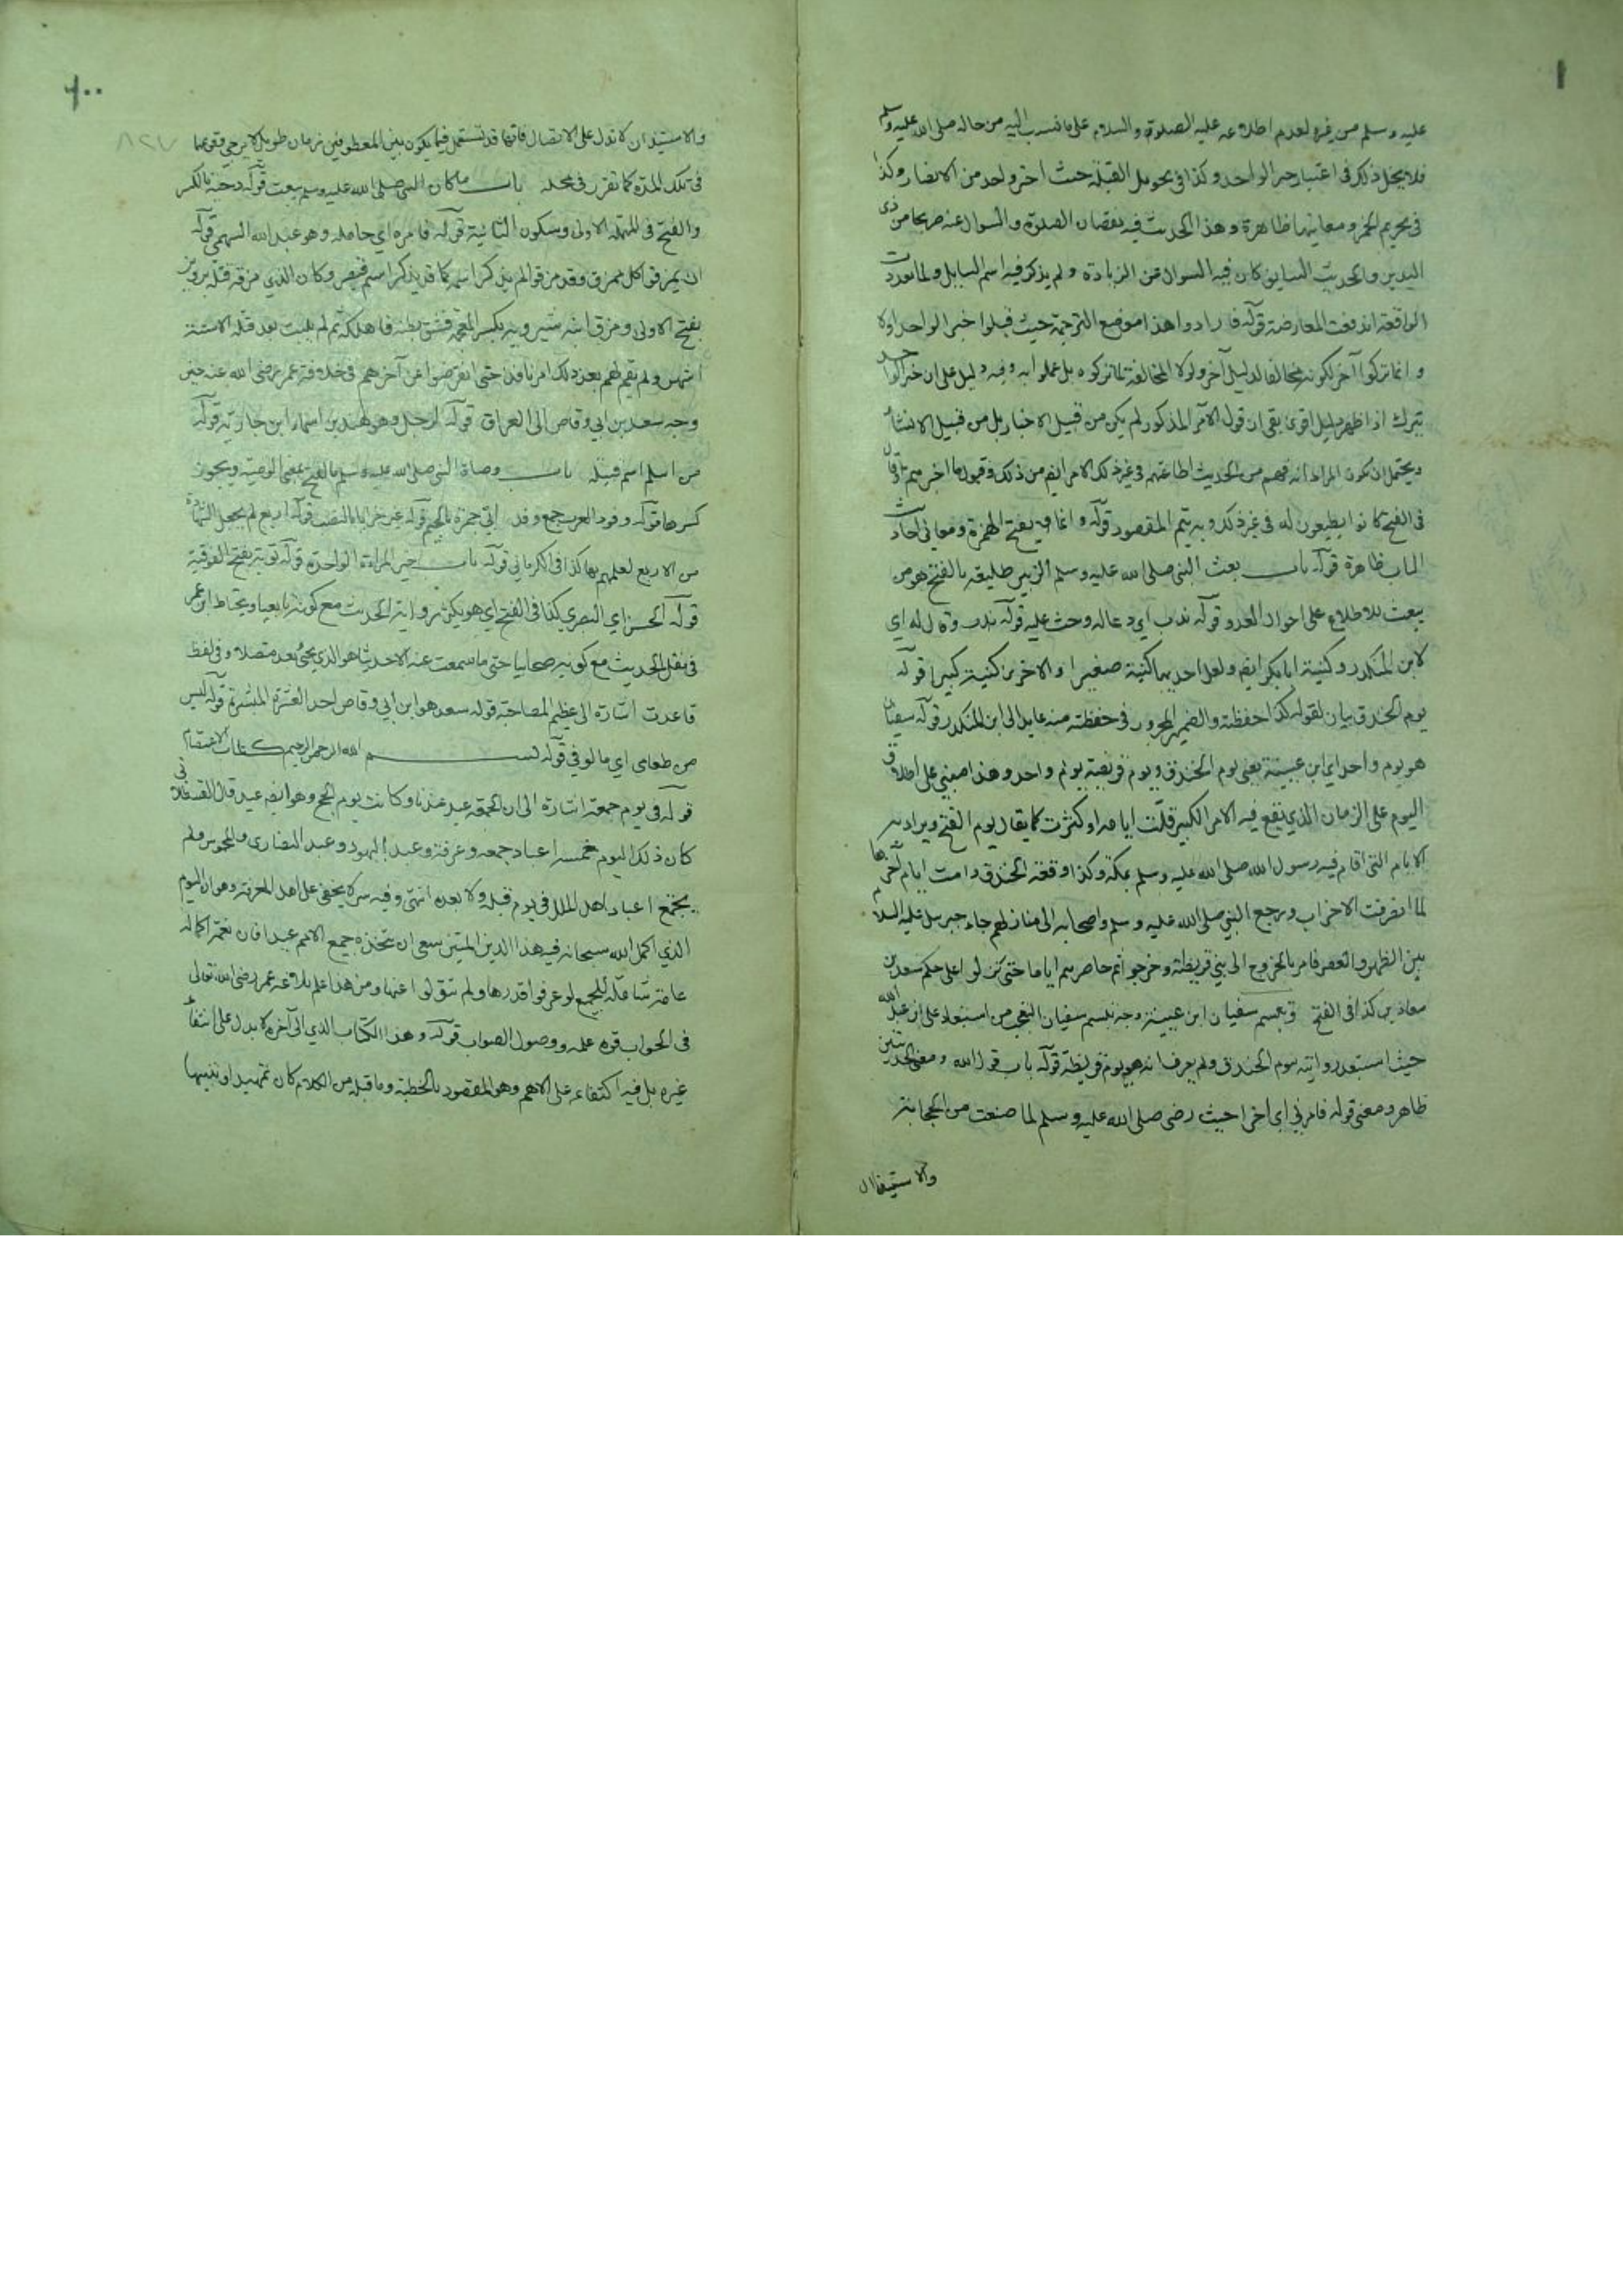 ١
عليه وسلم من غيره لعدم اطلاعه عليه الصلوة والسلام على ما نسب اليه من حاله صلى الله عليه وسلم
فلا يخل ذلك في اعتبار خبر الواحد وكذا في تحويل القبلة حيث اخبر واحد من الانصار وكذا
في تحريم الخمر ومعانيها ظاهرة وهذا الحديث فيه نقصان الصلوة والسوال عنه صريحا من ذي
اليدين والحديث السابق كان فيه السوال عن الزيادة ولم يذكر فيه اسم السايل ولما تعددت
الواقعة اندفعت المعارضة قوله فارادوا هذا موضع الترجمة حيث قبلوا خبر الواحد اولا
وانما تركوا آخر لكونه مخالفا لدليل آخر ولولا المخالفة لما تركوه بل عملوا به وفيه دليل على ان خبر الواحد
يترك اذا ظهر دليل اقوى بقي ان قول الآمر المذكور لم يكن من قبيل الاخبار بل من قبيل الانشاء
ويحتمل ان يكون المراد انه فهم من الحديث اطاعتهم في غير ذلك الامر ايضا من ذلك وقبول ما اخبرهم قال
في الفتح كانوا يطيعون له في غير ذلك وبه يتم المقصود قوله وانما هي بفتح الهمزة ومعاني احاديث
الباب ظاهرة قوله باب بعث النبي صلى الله عليه وسلم الزبير طليعة بالفتح هو من
يبعث للاطلاع على احوال العدو قوله ندب اي دعا له وحث عليه قوله ندب وقال له اي
لابن المنكدر وكنية ابا بكر ايضا ولعل احديهما كنيته صغيرا والاخرى كنيته كبيرا قوله
يوم الخندق بيان لقوله كذا حفظته والضمير المجرور في حفظته منه عايد الى ابن المنكدر قوله سفيان
هو يوم واحد اي ابن عيينة يعني يوم الخندق ويوم قريظة يوم واحد وهذا مبني على اطلاق
اليوم على الزمان الذي يقع فيه الامر الكبير قلت ايامه او كثرت كما يقال يوم الفتح ويراد به
الايام التي اقام فيه رسول الله صلى الله عليه وسلم بمكة وكذا وقعة الخندق دامت ايام آخرها
لما انصرفت الاحزاب ورجع النبي صلى الله عليه وسلم واصحابه الى منازلهم جاء جبريل عليه السلام
بين الظهر والعصر فامر بالخروج الى بني قريظة وخرجوا ثم حاصرهم اياما حتى نزلوا على حكم سعد بن
معاذ بن كذا في الفتح وتبسم سفيان ابن عيينة وجه تبسم سفيان التعجب من استبعاد علي ابن عبد الله
حيث استبعد روايته يوم الخندق ولم يعرف انه هو يوم قريظة قوله باب قول الله ومعنى الحديثين
ظاهر ومعنى قوله فامرني اي اخرا حيث رضي صلى الله عليه وسلم لما صنعت من الحجابة
والاستيذان
٦٠٠
٨٢٧
والاستيذان لا تدل على الاتصال فانها قد تستعمل فيما يكون بين المعطوفين زمان طويل لا يرجى وقوعها
في تلك المدة كما تقرر في محله باب ما كان النبي صلى الله عليه وسلم يبعث قوله دحية بالكسر
والفتح في المهملة الاولى وسكون الثانية قوله فامره اي حامله وهو عبد الله السهمي قوله
ان يمزقوا كل ممزق وقد مزقوا لم يذكر اسمه كما قد يذكر اسم قيصر وكان الذي مزقه قتله برويز
بفتح الاولى ومزق ابنه شيرويه بكسر المعجمة فشق بطنه فاهلكه ثم لم يلبث بعد قتله الا ستة
اشهر ولم يقم لهم بعد ذلك امر نافذ حتى انقرضوا عن آخرهم في خلافة عمر رضي الله عنه حين
وجه سعد بن ابي وقاص الى العراق قوله لرجل وهو هند بن اسماء ابن حارثة قوله
من اسلم اسم قبيلة باب وصاة النبي صلى الله عليه وسلم بالفتح بمعنى الوصية ويجوز
كسرها قوله وفود العرب جمع وفد ابي جمرة بالجيم قوله غير خزايا بالنصب قوله اربع لم يجعل الشهادة
من الاربع لعلمهم بها كذا في الكرماني قوله باب خبر المراءة الواحدة قوله توبة بفتح الفوقية
قوله الحسن اي البصري كذا في الفتح اي هو يكثر رواية الحديث مع كونه تابعيا ويحتاط ابن عمر
في نقل الحديث مع كونه صحابيا حتى ما سمعت عنه الا حديثا هو الذي يجيء بعد متصلا وفي لفظ
قاعدت اشارة الى عظيم المصاحبة قوله سعد هو ابن ابي وقاص احد العشرة المبشرة قوله ليس
من طعامي اي مألوفي قوله بسم الله الرحمن الرحيم كتاب الاعتصام
قوله في يوم جمعة اشارة الى ان الجمعة عيد عندنا وكانت يوم الحج وهو ايضا عيد قال القسطلاني
كان ذلك اليوم خمسة اعياد جمعة وعرفة وعيد اليهود وعيد النصارى والمجوس ولم
يجتمع اعياد اهل الملل في يوم قبله ولا بعده انتهى وفيه سر لا يخفى على اهل المعرفة وهو ان اليوم
الذي اكمل الله سبحانه فيه هذا الدين المتين ينبغي ان يتخذه جميع الامم عيدا فان نعمة اكماله
عامة شاملة للجميع لو عرفوا قدرها ولم يتولوا عنها ومن هذا علم بلاغة عمر رضي الله تعالى
في الجواب قوة علمه ووصول الصواب قوله وهذا الكتاب الذي الى آخره لا يدل على انتفاء
غيره بل فيه اكتفاء على الاهم وهو المقصود بالخطبة وما قبله من الكلام كان تمهيدا وتنبيها